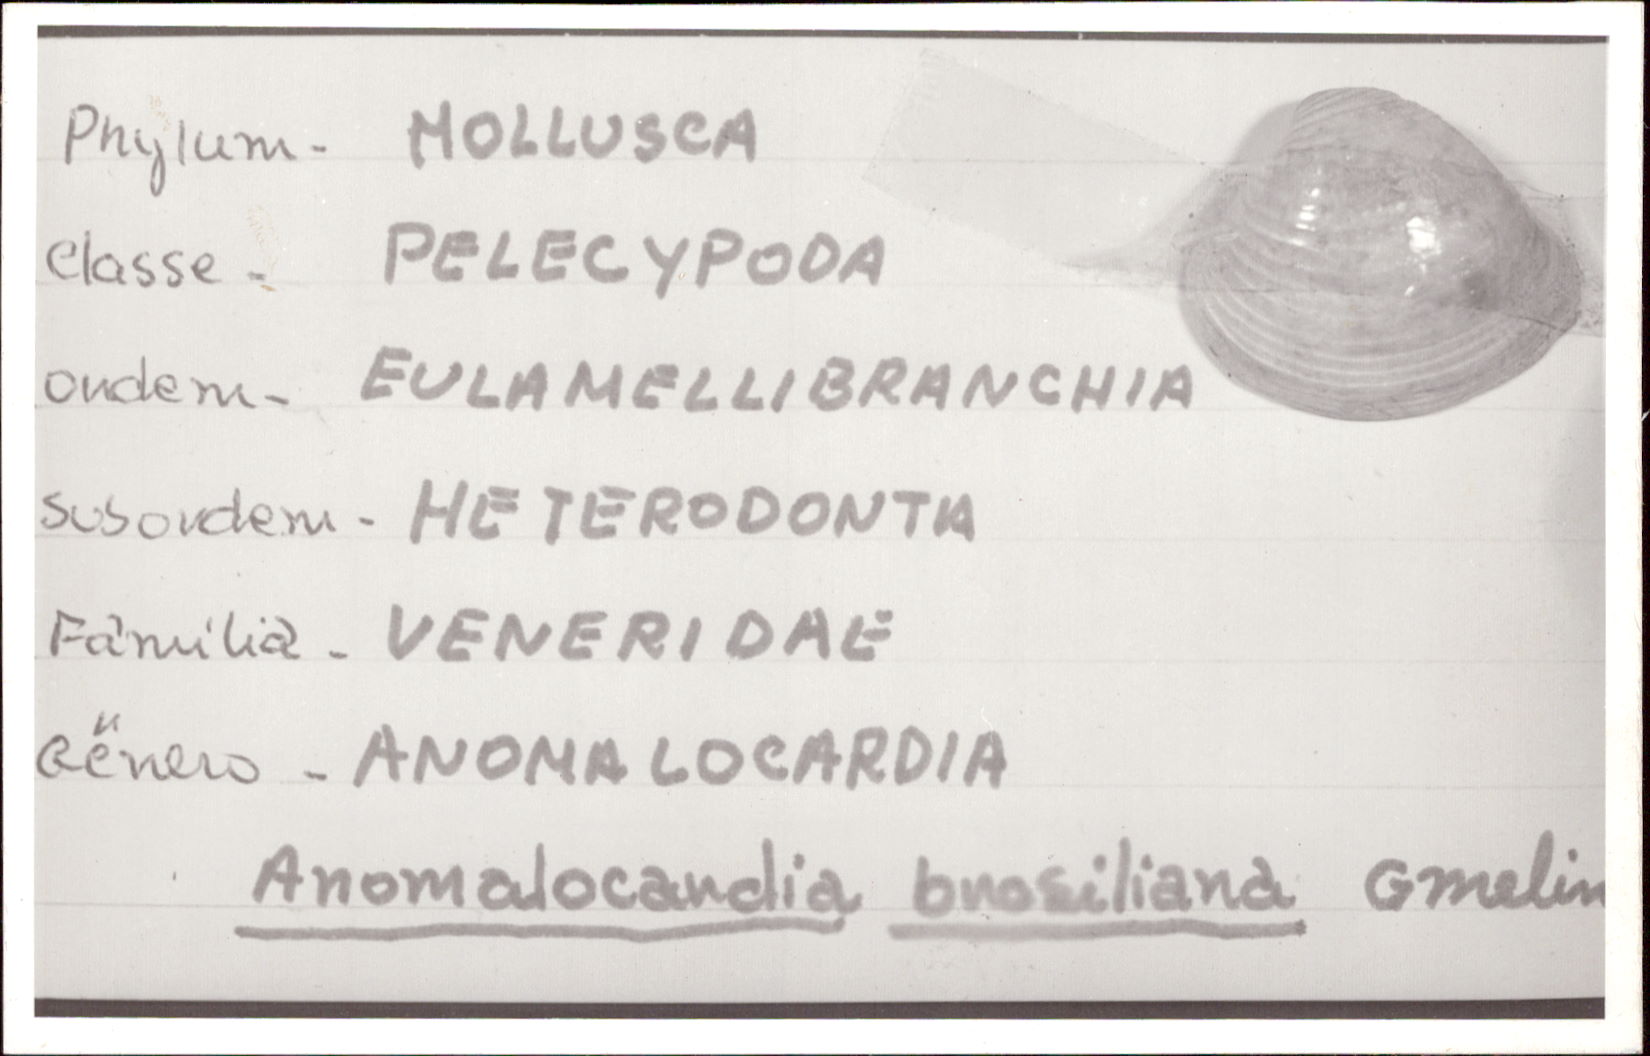 Phylum- MOLLUSCA
Classe - PELECYPODA
ordem- EULAMELLIBRANCHIA
subordem - HETERODONTA
Família - VENERIDAE
Gênero - ANOMALOCARDIA
Anomalocardia brasiliana Gmelin